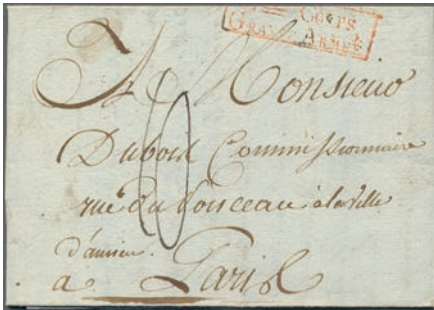 Corps
Grande Armée
A Monsieur
Dubois Commissionnaire
rue du à la ville
d'amien.
a Paris
10